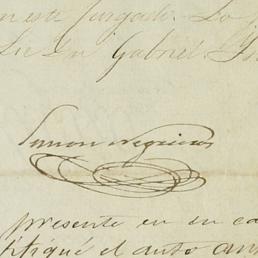 en este Juzgado. Lo
Lic Dn Gabriel
Simon Negrieros
presente en su ca
tifiqué el auto an